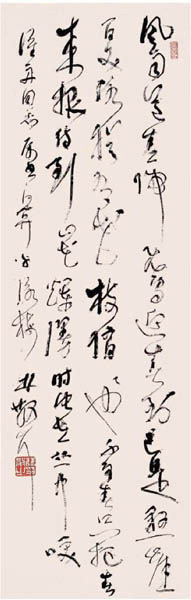 风雨送春归飞雪迎春到已是悬崖
百丈冰犹有花枝俏〻也不争春只把春
来报待到山花烂漫时她在丛中笑
同志属书 咏梅 林散之